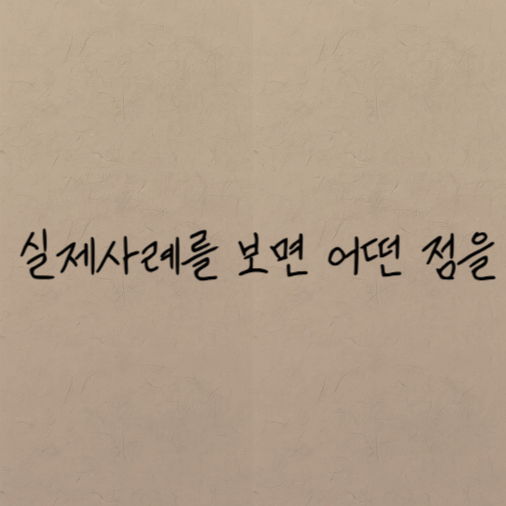 실제사례를 보면 어떤 점을